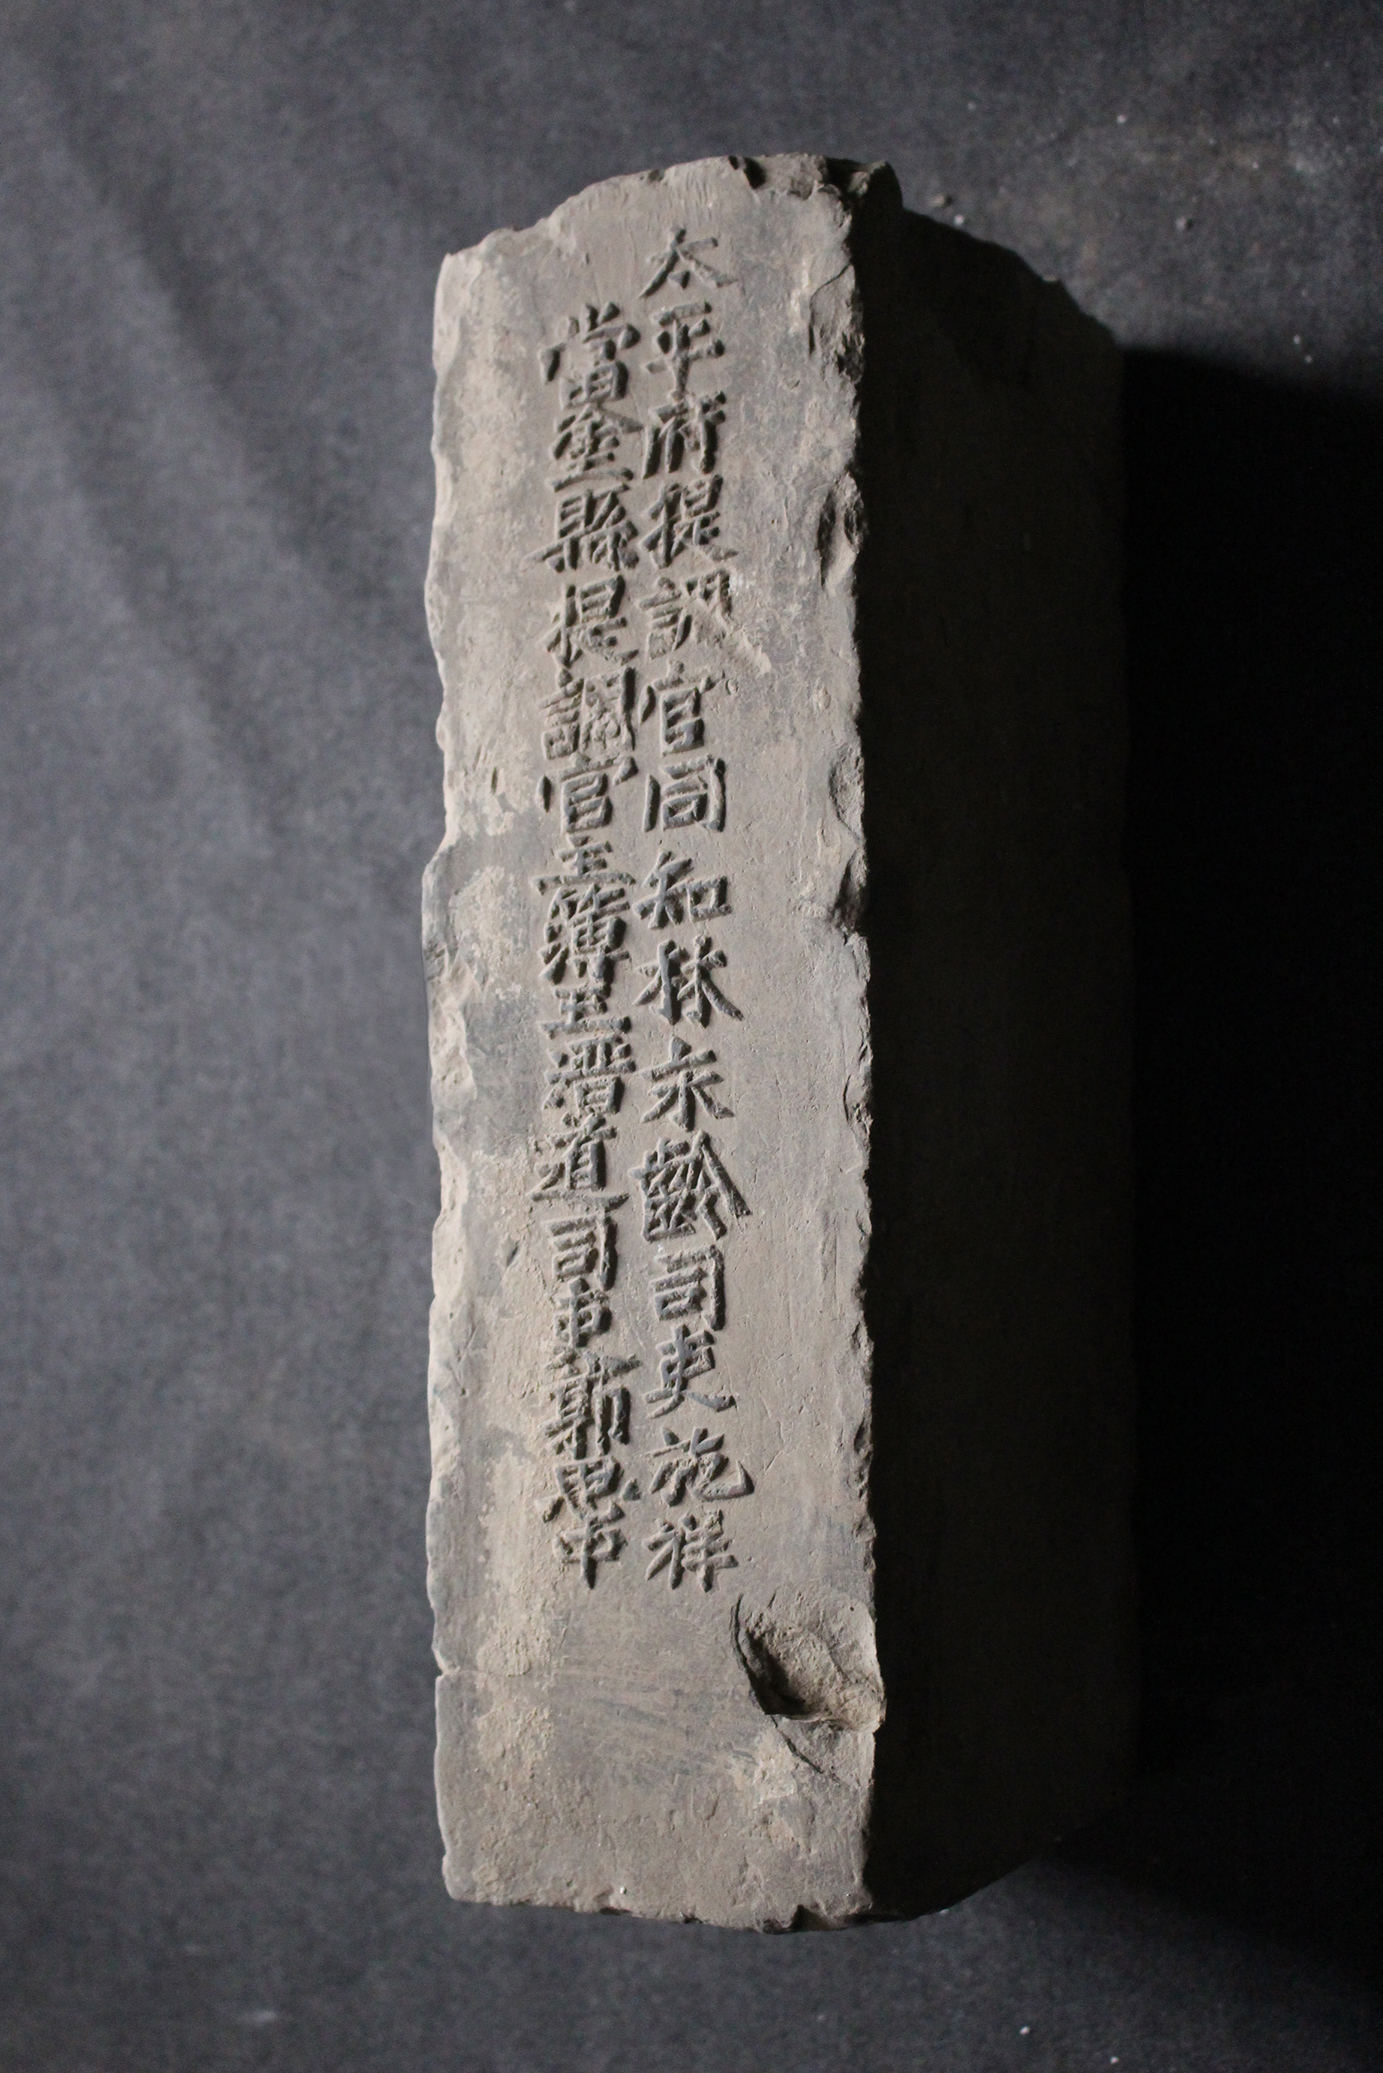 太平府提調官同知林永齡司吏施祥
當塗縣提調官主簿王溍道司吏郭思中